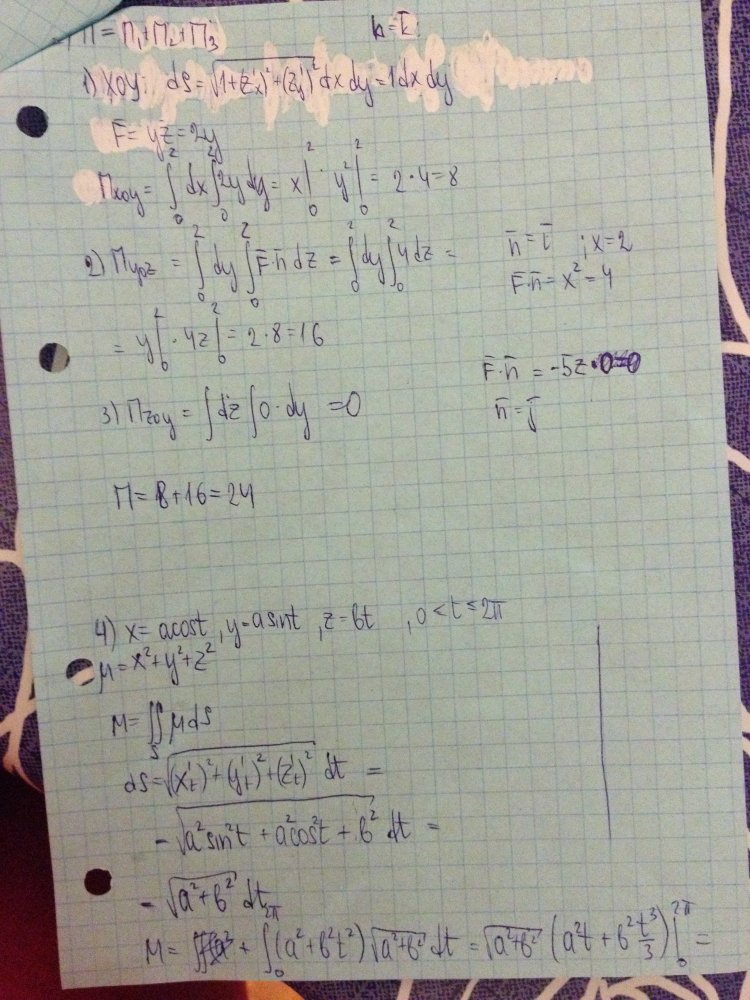 П = П₁+П₂+П₃
n̄=k̄
1) XOY: dS = √(1+(z'ₓ)²+(z'ᵧ)²) dx dy = 1 dx dy
F̄ = yz = 2y
Пxoy = ∫₀² dx ∫₀² 2y dy = x|₀² · y²|₀² = 2·4 = 8
2) Пyoz = ∫₀² dy ∫₀² F̄·n̄ dz = ∫₀² dy ∫₀² 4 dz =
n̄ = ī ; x=2
F̄·n̄ = x² = 4
= y|₀² · 4z|₀² = 2·8 = 16
F̄·n̄ = -5z·0=0
n̄ = j̄
3) Пzoy = ∫dz ∫0·dy = 0
П = 8+16 = 24
4) x = a cost, y = a sint, z = bt, 0 < t ≤ 2π
μ = x²+y²+z²
M = ∬ₛ μ dS
dS = √((x'ₜ)²+(y'ₜ)²+(z'ₜ)²) dt =
- √(a² sin²t + a² cos²t + b²) dt =
- √(a²+b²) dt
M = + ∫₀²π (a²+b²t²) √(a²+b²) dt = √(a²+b²) (a²t + b² t³/3)|₀²π =